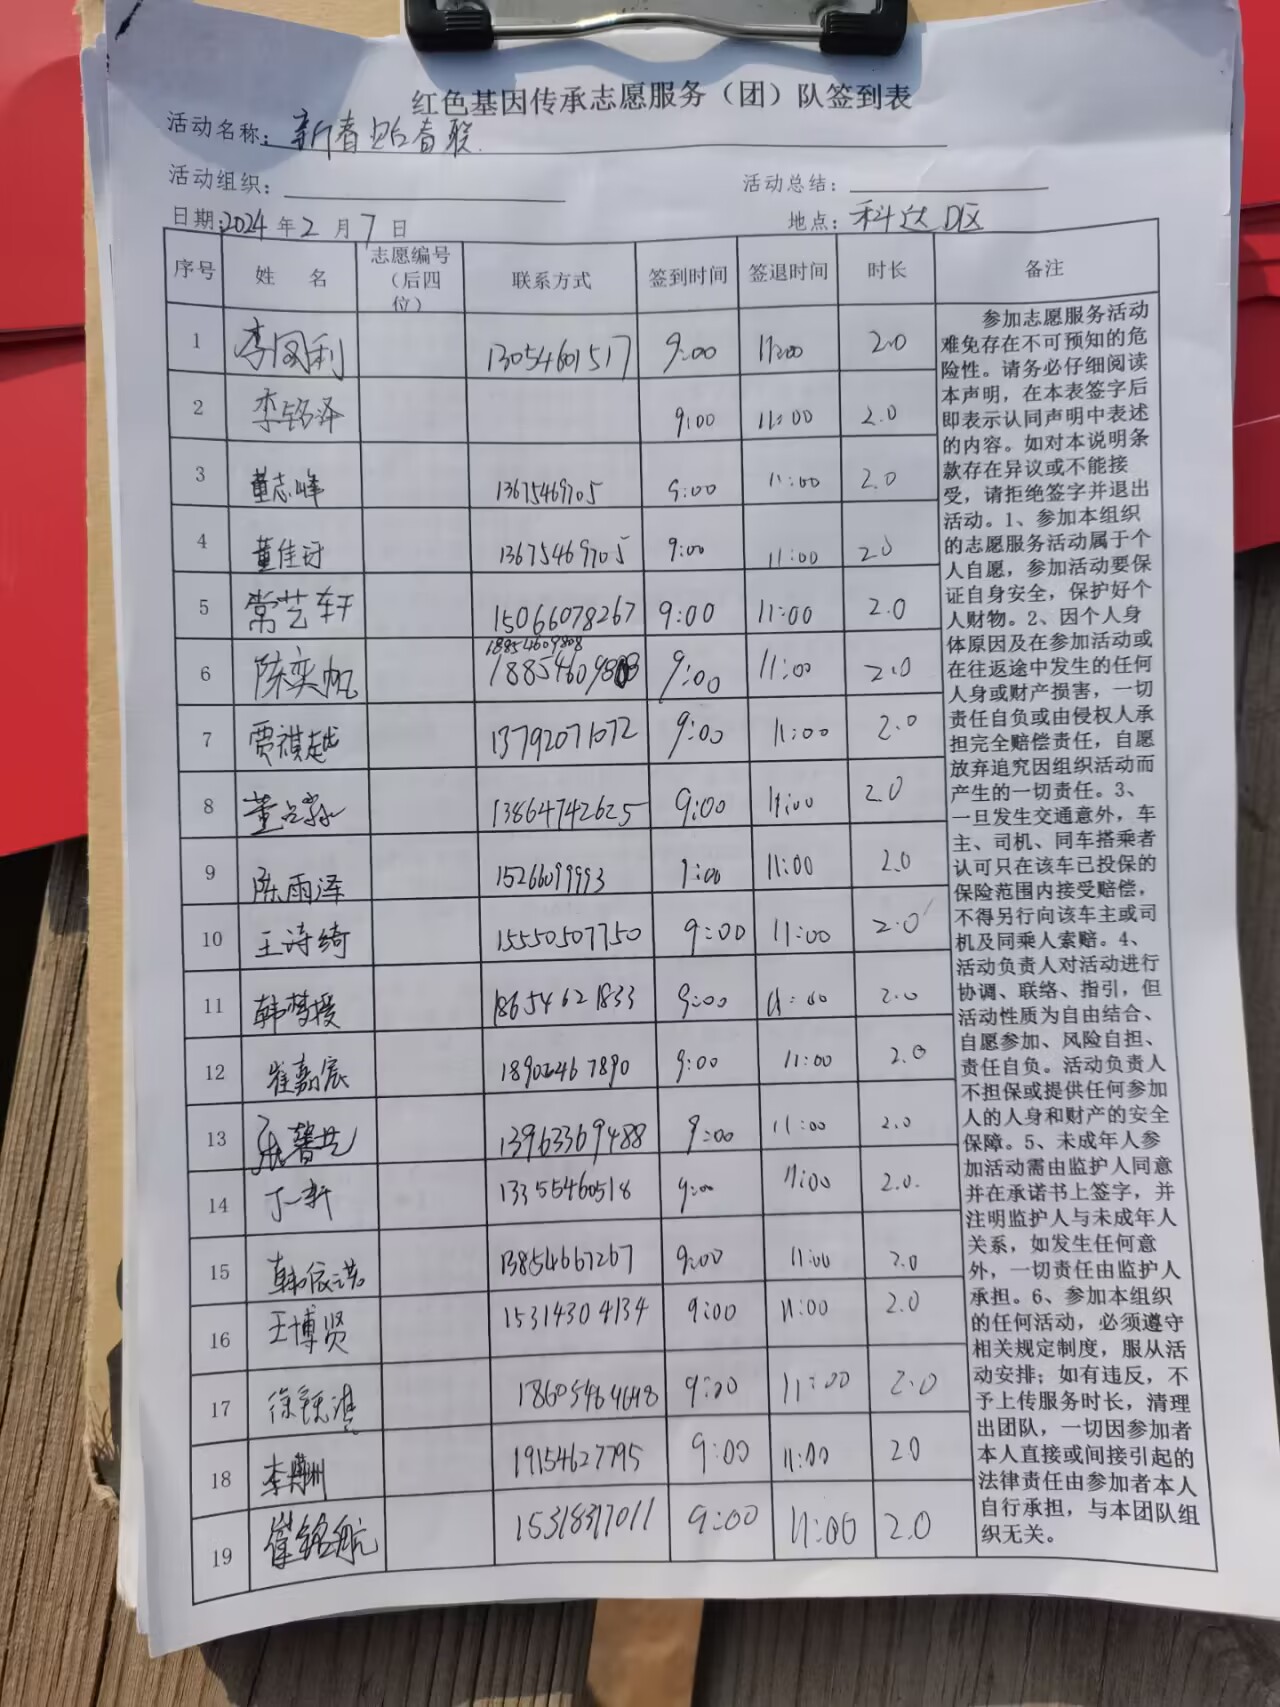 红色基因传承志愿服务（团）队签到表
活动名称：新春贴春联
活动组织：
活动总结：
日期:2024 年 2 月 7 日
地点：科达D区
序号 姓 名 志愿编号（后四位） 联系方式 签到时间 签退时间 时长 备注
1 李凤利 13054601517 9:00 11:00 2.0
2 李铭泽 9:00 11:00 2.0
3 董志峰 13675469705 9:00 11:00 2.0
4 董佳 13675469705 9:00 11:00 2.0
5 常艺轩 15066078267 9:00 11:00 2.0
18854609808
6 陈奕帆 18854609808 9:00 11:00 2.0
7 贾祺越 13792071072 9:00 11:00 2.0
8 董 13864742625 9:00 11:00 2.0
9 陈雨泽 15266099993 9:00 11:00 2.0
10 王诗绮 15550507750 9:00 11:00 2.0
11 韩梦援 18654621833 9:00 11:00 2.0
12 崔嘉宸 9:00 11:00 2.0
13 张馨艺 13963369488 9:00 11:00 2.0
14 丁一新 13355460518 9:00 11:00 2.0.
15 韩依诺 13854667267 9:00 11:00 2.0
16 王博贤 15314304134 9:00 11:00 2.0
17 徐 18605464648 9:00 11:00 2.0
18 李 19154627795 9:00 11:00 2.0
19 崔铭航 15318317011 9:00 11:00 2.0
参加志愿服务活动
难免存在不可预知的危
险性。请务必仔细阅读
本声明，在本表签字后
即表示认同声明中表述
的内容。如对本说明条
款存在异议或不能接
受，请拒绝签字并退出
活动。1、参加本组织
的志愿服务活动属于个
人自愿，参加活动要保
证自身安全，保护好个
人财物。2、因个人身
体原因及在参加活动或
在往返途中发生的任何
人身或财产损害，一切
责任自负或由侵权人承
担完全赔偿责任，自愿
放弃追究因组织活动而
产生的一切责任。3、
一旦发生交通意外，车
主、司机、同车搭乘者
认可只在该车已投保的
保险范围内接受赔偿，
不得另行向该车主或司
机及同乘人索赔。4、
活动负责人对活动进行
协调、联络、指引，但
活动性质为自由结合、
自愿参加、风险自担、
责任自负。活动负责人
不担保或提供任何参加
人的人身和财产的安全
保障。5、未成年人参
加活动需由监护人同意
并在承诺书上签字，并
注明监护人与未成年人
关系，如发生任何意
外，一切责任由监护人
承担。6、参加本组织
的任何活动，必须遵守
相关规定制度，服从活
动安排；如有违反，不
予上传服务时长，清理
出团队，一切因参加者
本人直接或间接引起的
法律责任由参加者本人
自行承担，与本团队组
织无关。